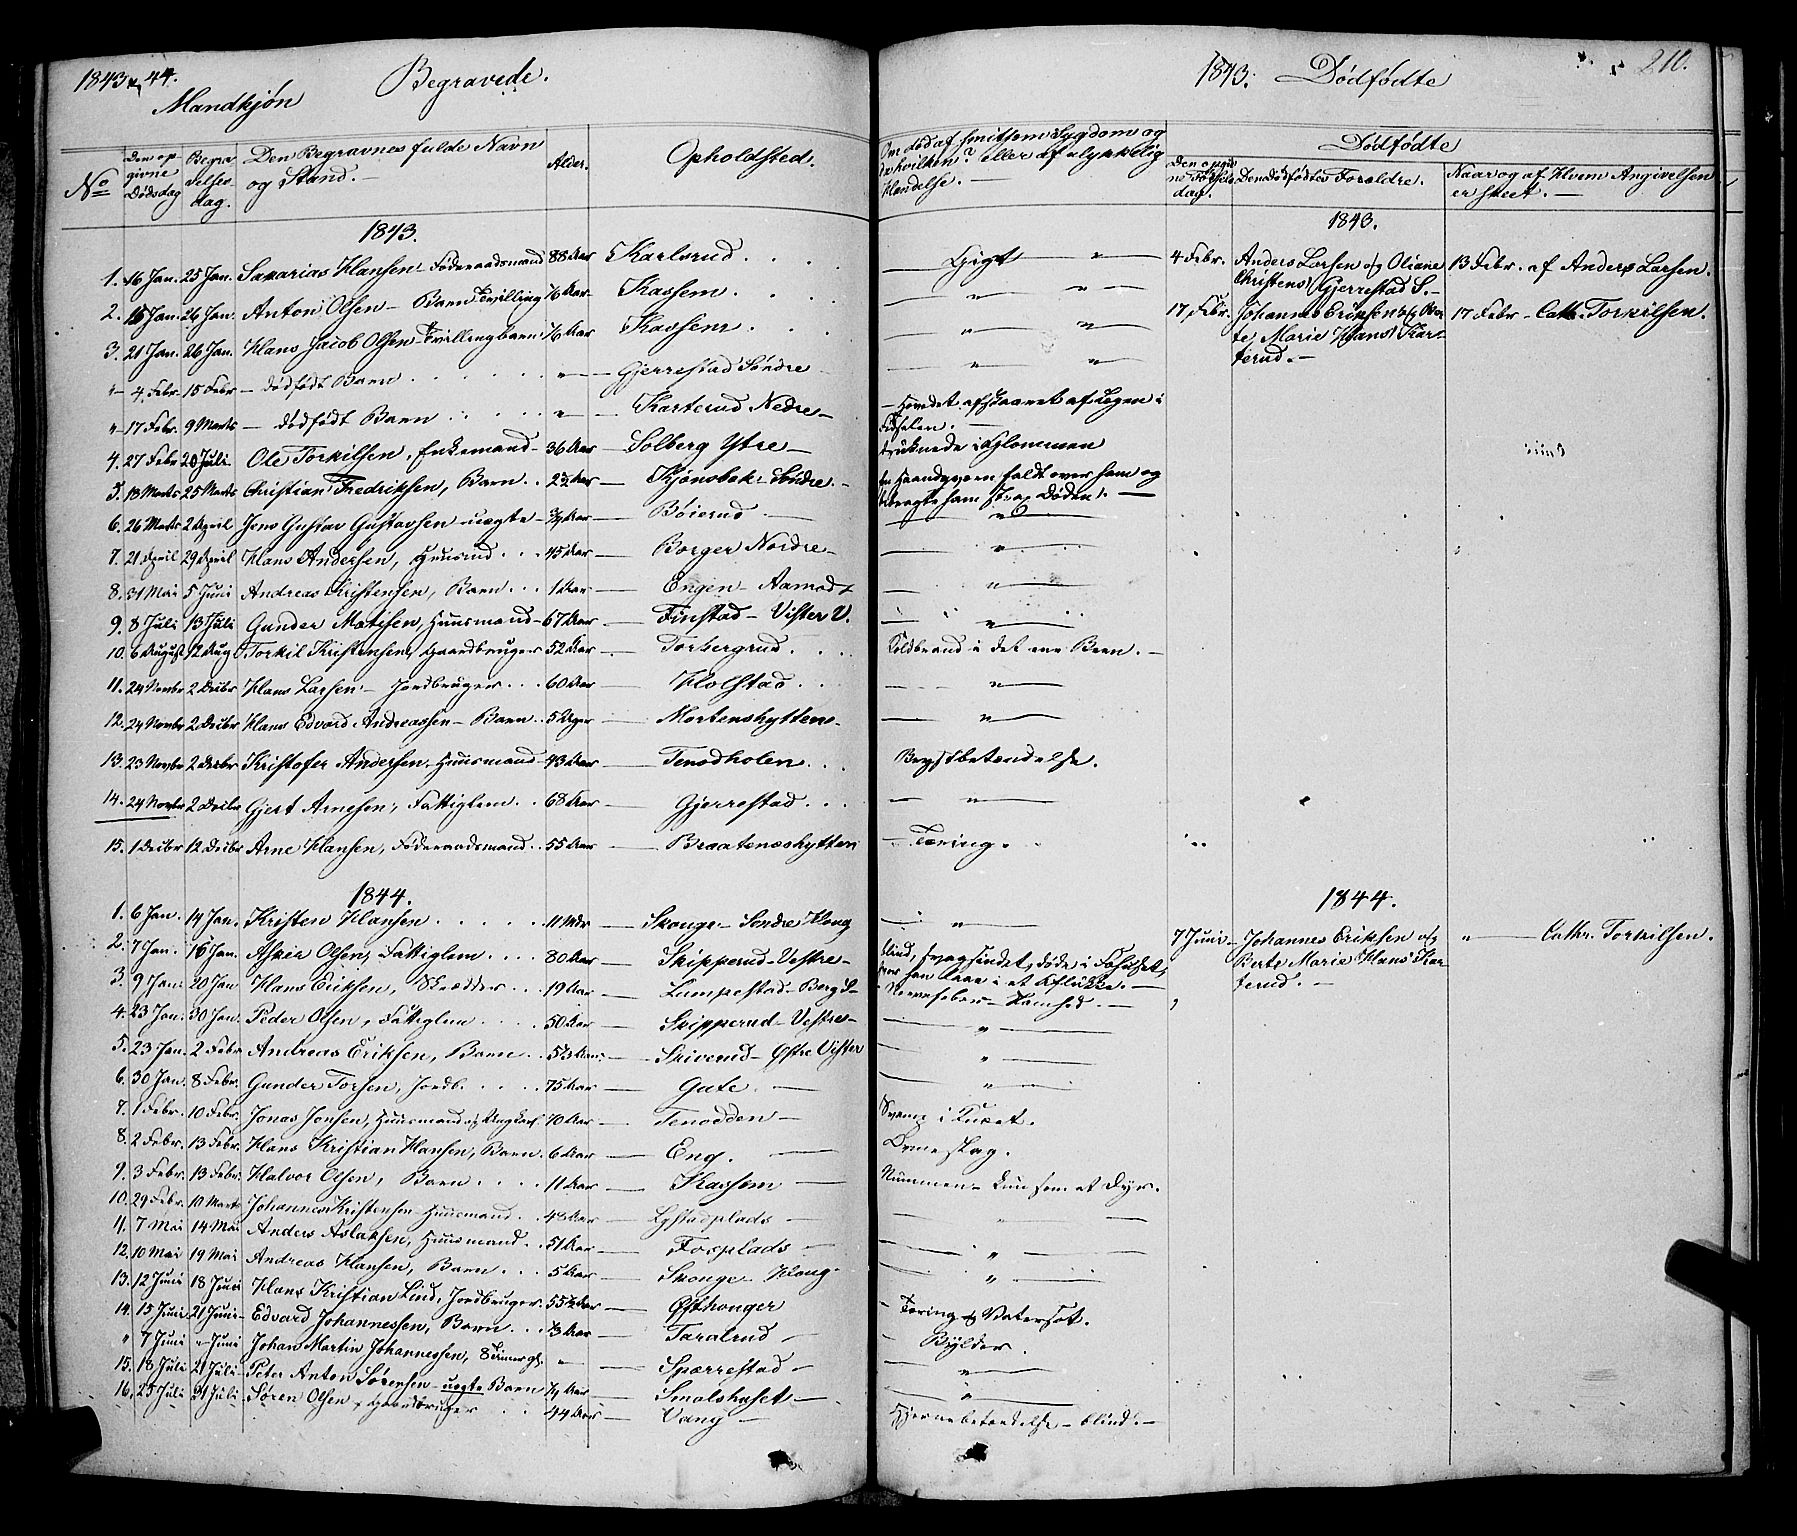 1843 & 44. Begravede.
Mandkjøn
No
Den opgivne Dødsdag
Begravelsesdag.
Den Begravnes fulde Navn og Stand.
Alder.
Opholdsted.
1843.
1. 16 Jan. 25 Jan. Sakarias Hansen, Føderaadsmand 88 Aar Karlsrud
2. 15 Jan. 26 Jan. Anton Olsen - Barn Tvilling 1/6 Aar Kassem
3. 21 Jan. 26 Jan. Hans Jacob Olsen - Tvillingbarn 1/6 Aar Kassem
" 4. Febr. 15 Febr - dødfødt Barn " Gjerrestad Søndre
" 17 Febr. 9 Marts - dødfødt Barn " Karterud Nedre
4. 27 Febr 20 Juli Ole Torkilsen, Enkemand 36 Aar Solberg Ytre
5. 18 Marts 25 Marts Christian Fredriksen, Barn 2 1/2 Aar Kjønsbek Søndre
6. 26 Marts 2 April Jens Gustav Gustavsen uægte 3/4 Aar Bøierud
7. 21 April 29 April Hans Andersen, Huusmd 45 Aar Borger Nordre
8. 31 Mai 5 Juni Andreas Kristensen, Barn 1 Aar Engen - Aamodt
9. 8 Juli 13 Juli Gunder Matisen, Huusmand 67 Aar Finstad - Vister V.
10. 6 August 12 Aug Torkil Kristensen, Gaardbruger 52 Aar Torbergrud
11. 24 Novbr 2 Decbr Hans Larsen - Jordbruger 60 Aar Holstad
12. 24 Novbr 2 Decbr Hans Edvard Andreassen - Barn 5 Uger Mortenshytten
13. 23 Novbr 2 Decbr Kristofer Andersen, Huusmand 43 Aar Tenodholen
14. 24 Novbr 2 Decbr Gjert Arnesen, Fattiglem 68 Aar Gjerrestad
15. 1 Decbr 12 Decbr Arne Hansen, Føderaadsmand 55 Aar Braatenæshytten
1844.
1. 6 Jan. 14 Jan. Kristen Hansen 11 Mdr Skonge - Søndre Haug
2. 7 Jan. 16 Jan. Asker Olsen, Fattiglem 80 Aar Skipperud - Vestre
3. 9 Jan. 20 Jan Hans Eriksen, Skrædder 19 Aar Lumpestad - Berg S
4. 23 Jan. 30 Jan. Peder Olsen, Fattiglem 50 Aar Skipperud - Vestre
5. 23 Jan. 2 Febr Andreas Eriksen, Barn 5 1/2 Aar Skiverud - Østre Vister
6. 30 Jan. 8 Febr. Gunder Torsen, Jordb. 75 Aar Gate
7. 1 Febr. 10 Febr. Jonas Jonsen, Huusmand 70 Aar Tenodden
8. 2 Febr. 13 Febr. Hans Kristian Hansen, Barn 6 Aar Eng.
9. 3 Febr. 13 Febr. Halvor Olsen, Barn 11 Aar Kassem
10. 29 Febr. 10 Marts Johannes Kristensen Huusmand 48 Aar Lystadplads
11. 7 Mai 14 Mai Anders Aslaksen, Huusmand 51 Aar Fosplads
12. 10 Mai 19 Mai Andreas Hansen, Barn 5 Aar Skonge - Haug
13. 12 Juni 18 Juni Hans Kristian Lind, Jordbruger 55 1/2 Aar Østhonger
14. 15 Juni 21 Juni Edvard Johannessen, Barn 1/3 Aar Taralrud
" 7 Juni " Juni Johan Martin Johannessen, 8 Timer gl. " Sparrestad
15. 18 Juli 21 Juli Peter Anton Sørensen - uægte Barn 1/4 Aar Smalshuset
16. 25 Juli 31 Juli Søren Olsen, Gaardbruger 44 Aar Vang
1843. Dødfødte 210.
Om død af smitsom Sygdom og da hvilken? eller af ulykkelig Hændelse.
Dødfødte
Den opgivne Fødselsdag.
Den Dødfødtes Forældre.
Naar og af Hvem Angivelsen er skeet.
1843.
Gigt "
4 Febr. Anders Larsen og Oliane Christens' Gjerrestad S. 13 Febr. af Anders Larsen.
17 Febr. Johannes Eriksen og Berte Marie Hans' Karterud. 17 Febr - Cath. Torkilsen.
Hovedet afskaaret af Lægen i Fødselen.
druknede i Glommen
en Haandqvern faldt over ham og
bragte ham Døden.
Koldbrand i det ene Been.
Brystbetændelse.
Tæring.
1844.
7 Juni Johannes Eriksen og Berte Marie Hans' Karterud. " Cathr. Torkilsen.
Blind, svagsindet, døde i Fosset,
Nervefeber
Svamp i Knæet.
Nummen - Kun som et Dyr.
Tæring & Vatersot.
Bylder.
Hjernebetændelse - blind.